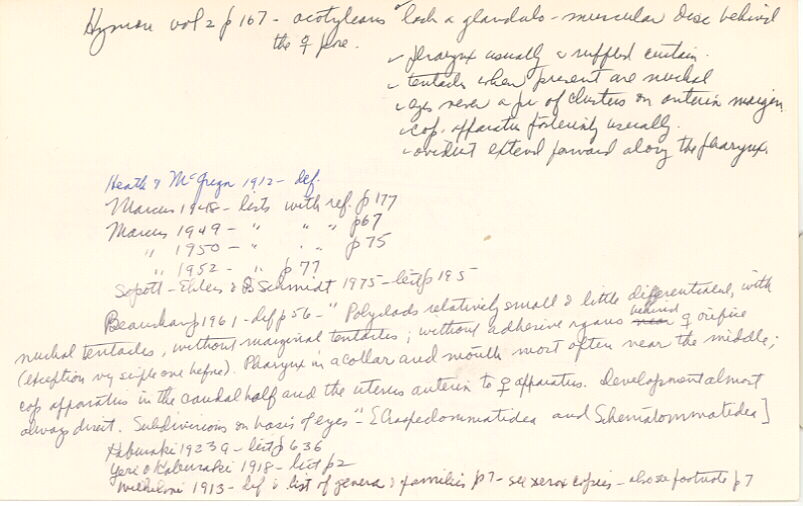 Hyman vol 2 p 167 - acotyleans lack a glandulo-muscular disc behind
the ♀ pore.
✓ pharynx usually a ruffled curtain.
✓ tentacles when present are nuchal
✓ eyes never a pr of clusters on anterior margin
✓ cop. apparatus posteriorly usually.
✓ oviduct extend forward along the pharynx.
Heath & McGregor 1912 - def.
Marcus 1948 - lists with ref. p 177
Marcus 1949 - " " " p 67
" 1950 - " " " p 75
" 1952 - " p 77
Sopott-Ehlers & Schmidt 1975 - list p 195
Beauchamp 1961 - def p 56 - " Polyclads relatively small & little differentiated, with
nuchal tentacles, without marginal tentacles; without adhesive organs near behind ♀ orifice
(exception vy simple one before). Pharynx in a collar and mouth most often near the middle;
cop apparatus in the caudal half and the uterus anterior to ♀ apparatus. Development almost
always direct. Subdivisions on basis of eyes" - [Craspedommatidea and Schematommatidea]
Kaburaki 1923a - list p 636
Yeri & Kaburaki 1918 - list p 2
Wilhelmi 1913 - def & list of genera & families p 7 - see xerox copies - also see footnote p 7